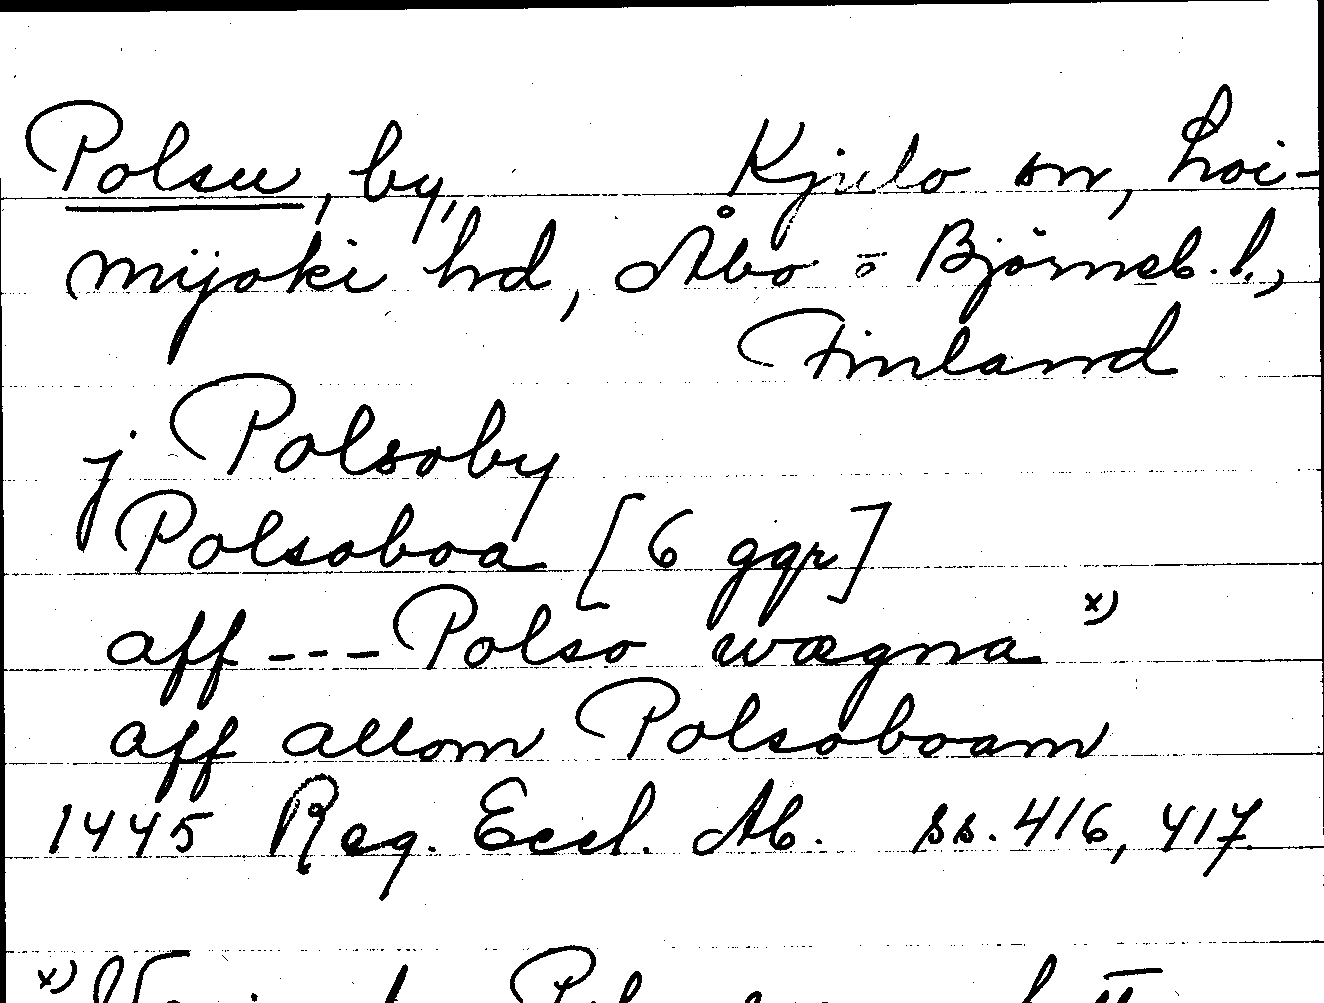 Polsu, by, Kjulo sn, Loi-
mijoki hd, Åbo - o Björneb. l.,
Finland
j Polsoby
Polsoboa [6 ggr]
aff --- Polso wægna x)
aff allom Polsoboam
1445 Reg. Eccl. Ab. ss. 416, 417.
x)